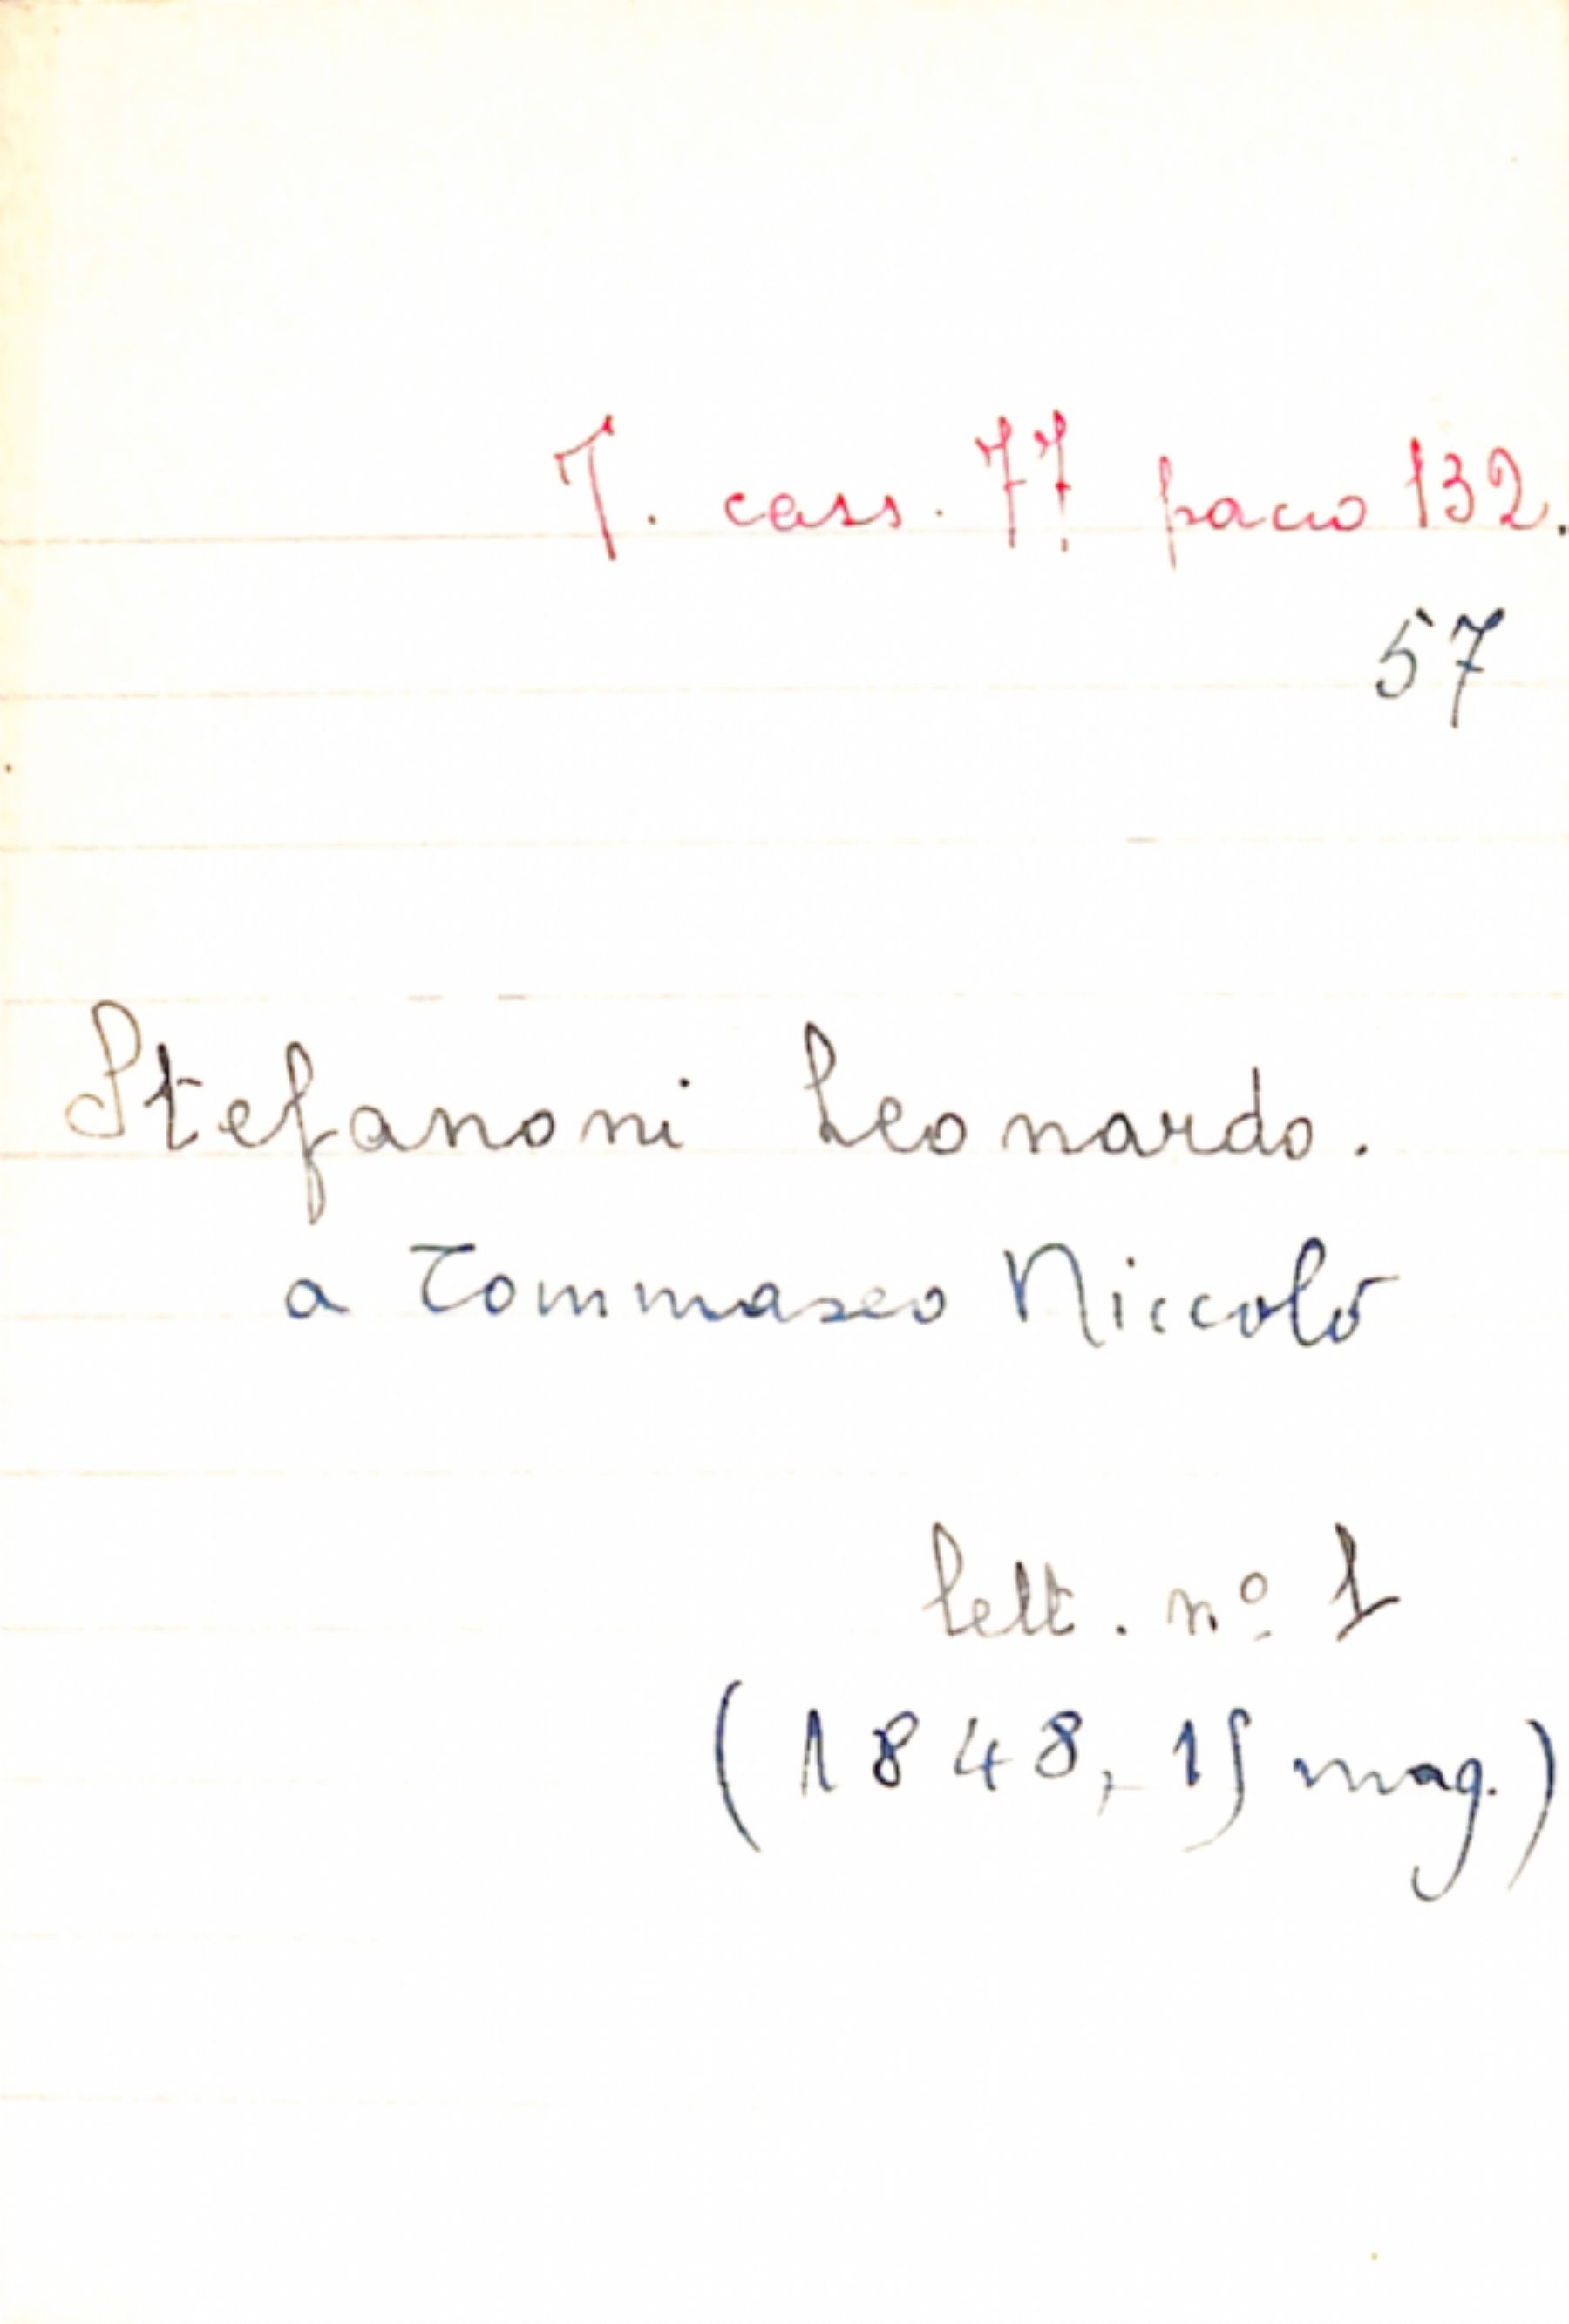 T. cass. 77 pacco 132.
57
Stefanoni Leonardo.
a Tommaseo Niccolò
lett. nº 1
(1848, 15 mag.)